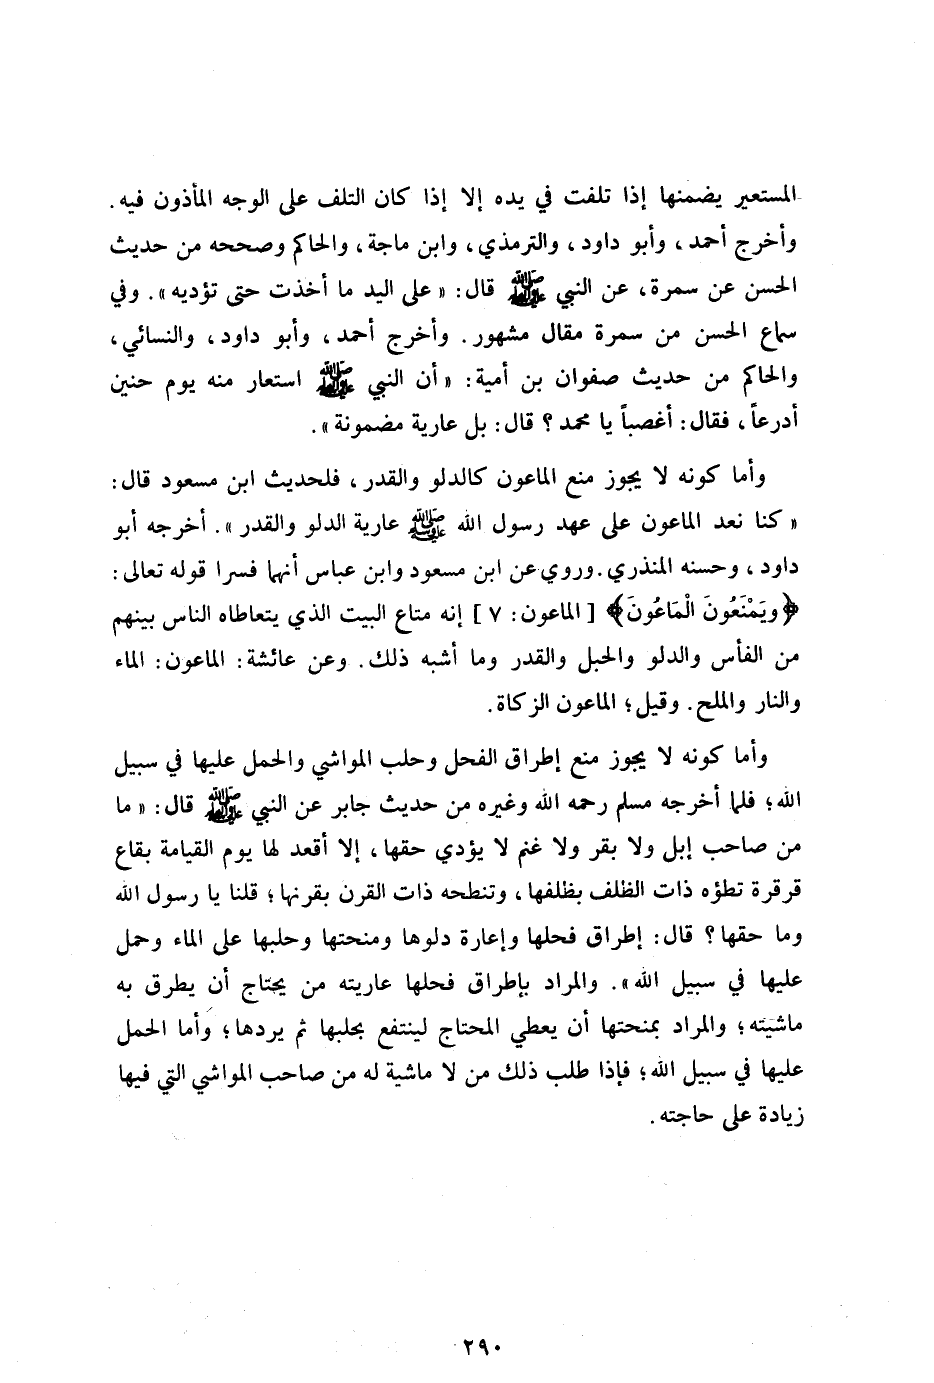 المستعير يضمنها إذا تلفت في يده إلا إذا كان التلف على الوجه المأذون فيه.
وأخرج أحمد، وأبو داود، والترمذي، وابن ماجة، والحاكم وصححه من حديث
الحسن عن سمرة، عن النبي ﷺ قال: «على اليد ما أخذت حتى تؤديه». وفي
سماع الحسن من سمرة مقال مشهور. وأخرج أحمد، وأبو داود، والنسائي،
والحاكم من حديث صفوان بن أمية: «أن النبي ﷺ استعار منه يوم حنين
أدرعاً، فقال: أغصباً يا محمد؟ قال: بل عارية مضمونة».
وأما كونه لا يجوز منع الماعون كالدلو والقدر، فلحديث ابن مسعود قال:
«كنا نعد الماعون على عهد رسول الله ﷺ عارية الدلو والقدر». أخرجه أبو
داود، وحسنه المنذري. وروي عن ابن مسعود وابن عباس أنهما فسرا قوله تعالى:
﴿ويَمْنَعُونَ الْمَاعُونَ﴾ [الماعون: ٧] إنه متاع البيت الذي يتعاطاه الناس بينهم
من الفأس والدلو والحبل والقدر وما أشبه ذلك. وعن عائشة: الماعون: الماء
والنار والملح. وقيل؛ الماعون الزكاة.
وأما كونه لا يجوز منع إطراق الفحل وحلب المواشي والحمل عليها في سبيل
الله؛ فلما أخرجه مسلم رحمه الله وغيره من حديث جابر عن النبي ﷺ قال: «ما
من صاحب إبل ولا بقر ولا غنم لا يؤدي حقها، إلا أقعد لها يوم القيامة بقاع
قرقرة تطؤه ذات الظلف بظلفها، وتنطحه ذات القرن بقرنها؛ قلنا يا رسول الله
وما حقها؟ قال: إطراق فحلها وإعارة دلوها ومنحتها وحلبها على الماء وحمل
عليها في سبيل الله». والمراد بإطراق فحلها عاريته من يحتاج أن يطرق به
ماشيته؛ والمراد بمنحتها أن يعطي المحتاج لينتفع بحلبها ثم يردها؛ وأما الحمل
عليها في سبيل الله؛ فإذا طلب ذلك من لا ماشية له من صاحب المواشي التي فيها
زيادة على حاجته.
٢٩٠